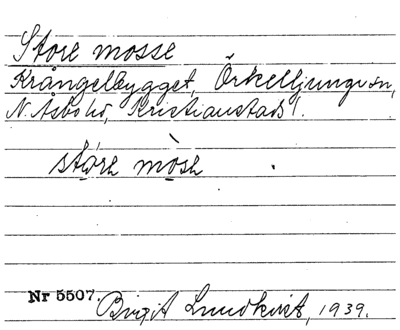 Store mosse
Krångelbygget, Örkelljunga sn,
N. Åsbo hd, Kristianstads l.
Nr 5507. Birgit Lundkvist, 1939.